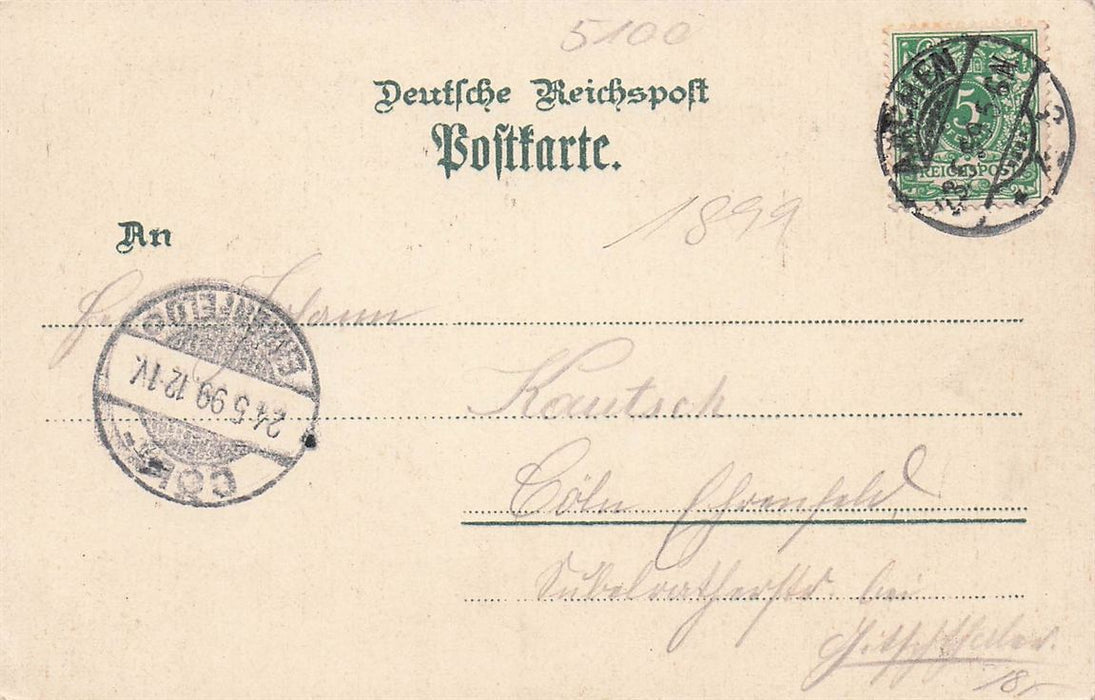 5100
Deutsche Reichspost
Postkarte.
5
REICHSPOST
AACHEN
1899
An
Johann
24.5.99.12-1V.
CÖLN
EHRENFELD
Kautsch
Cöln Ehrenfeld
Subelratherstr bei
18-